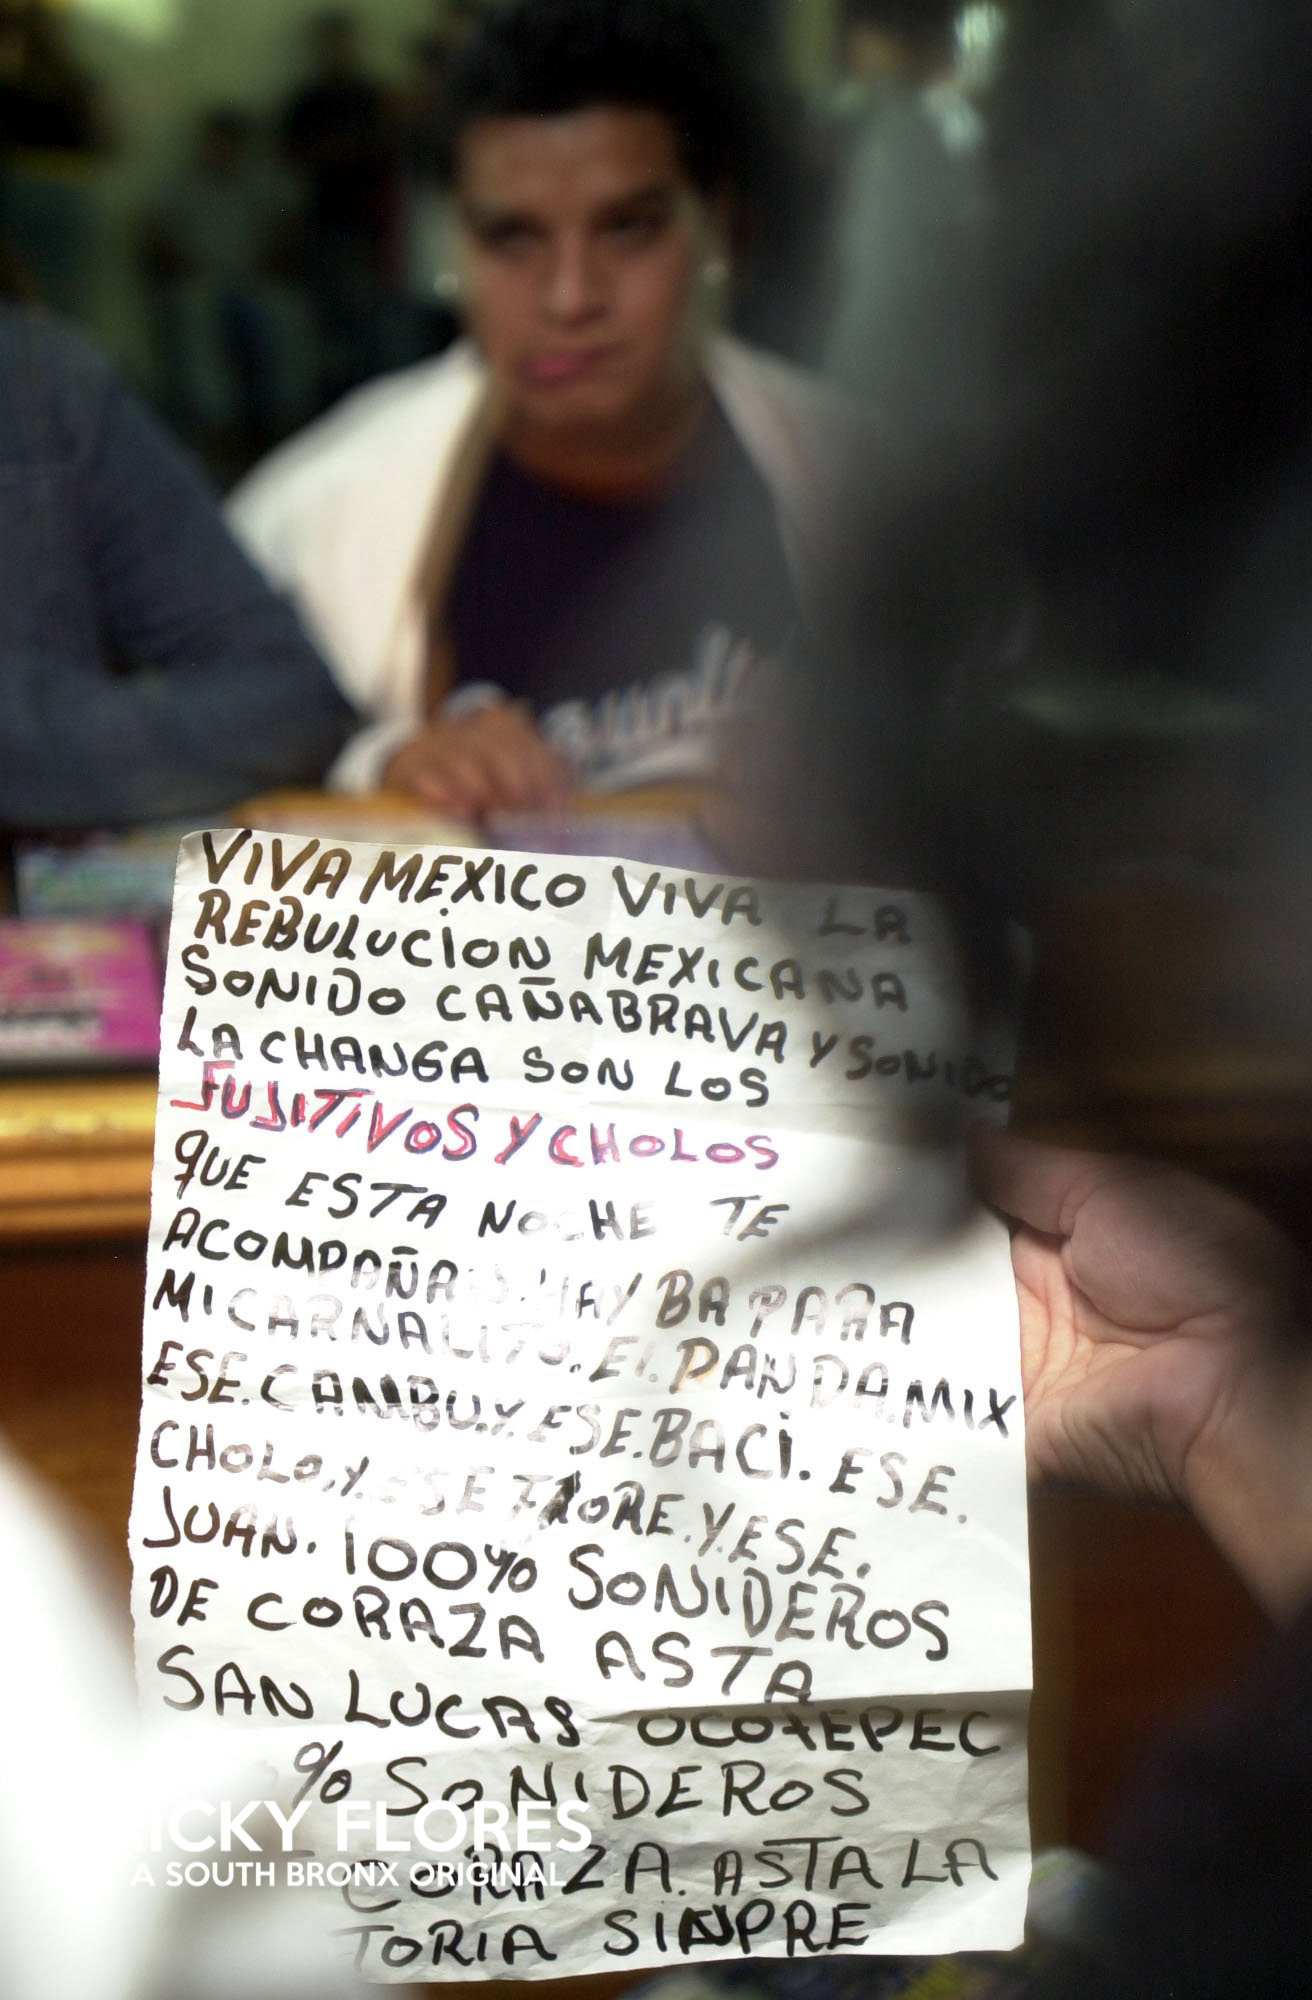 VIVA MEXICO VIVA LA
REBULUCION MEXICANA
SONIDO CAÑABRAVA Y SONIDO
LA CHANGA SON LOS
FUJITIVOS Y CHOLOS
QUE ESTA NOCHE TE
ACOMPAÑA HAY BA PARA
MI CARNALITO. El. PANDA. MIX
ESE. CAMBU. Y. ESE. BACI. ESE.
CHOLO. Y. ESE Y. ESE.
JUAN. 100% SONIDEROS
DE CORAZA ASTA
SAN LUCAS OCOTEPEC
% SONIDEROS
CORAZA. ASTA LA
TORIA SINPRE
RICKY FLORES
A SOUTH BRONX ORIGINAL